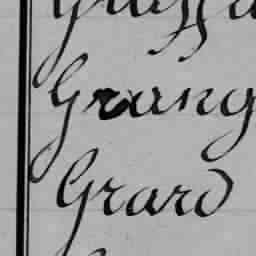 Grang
Grard